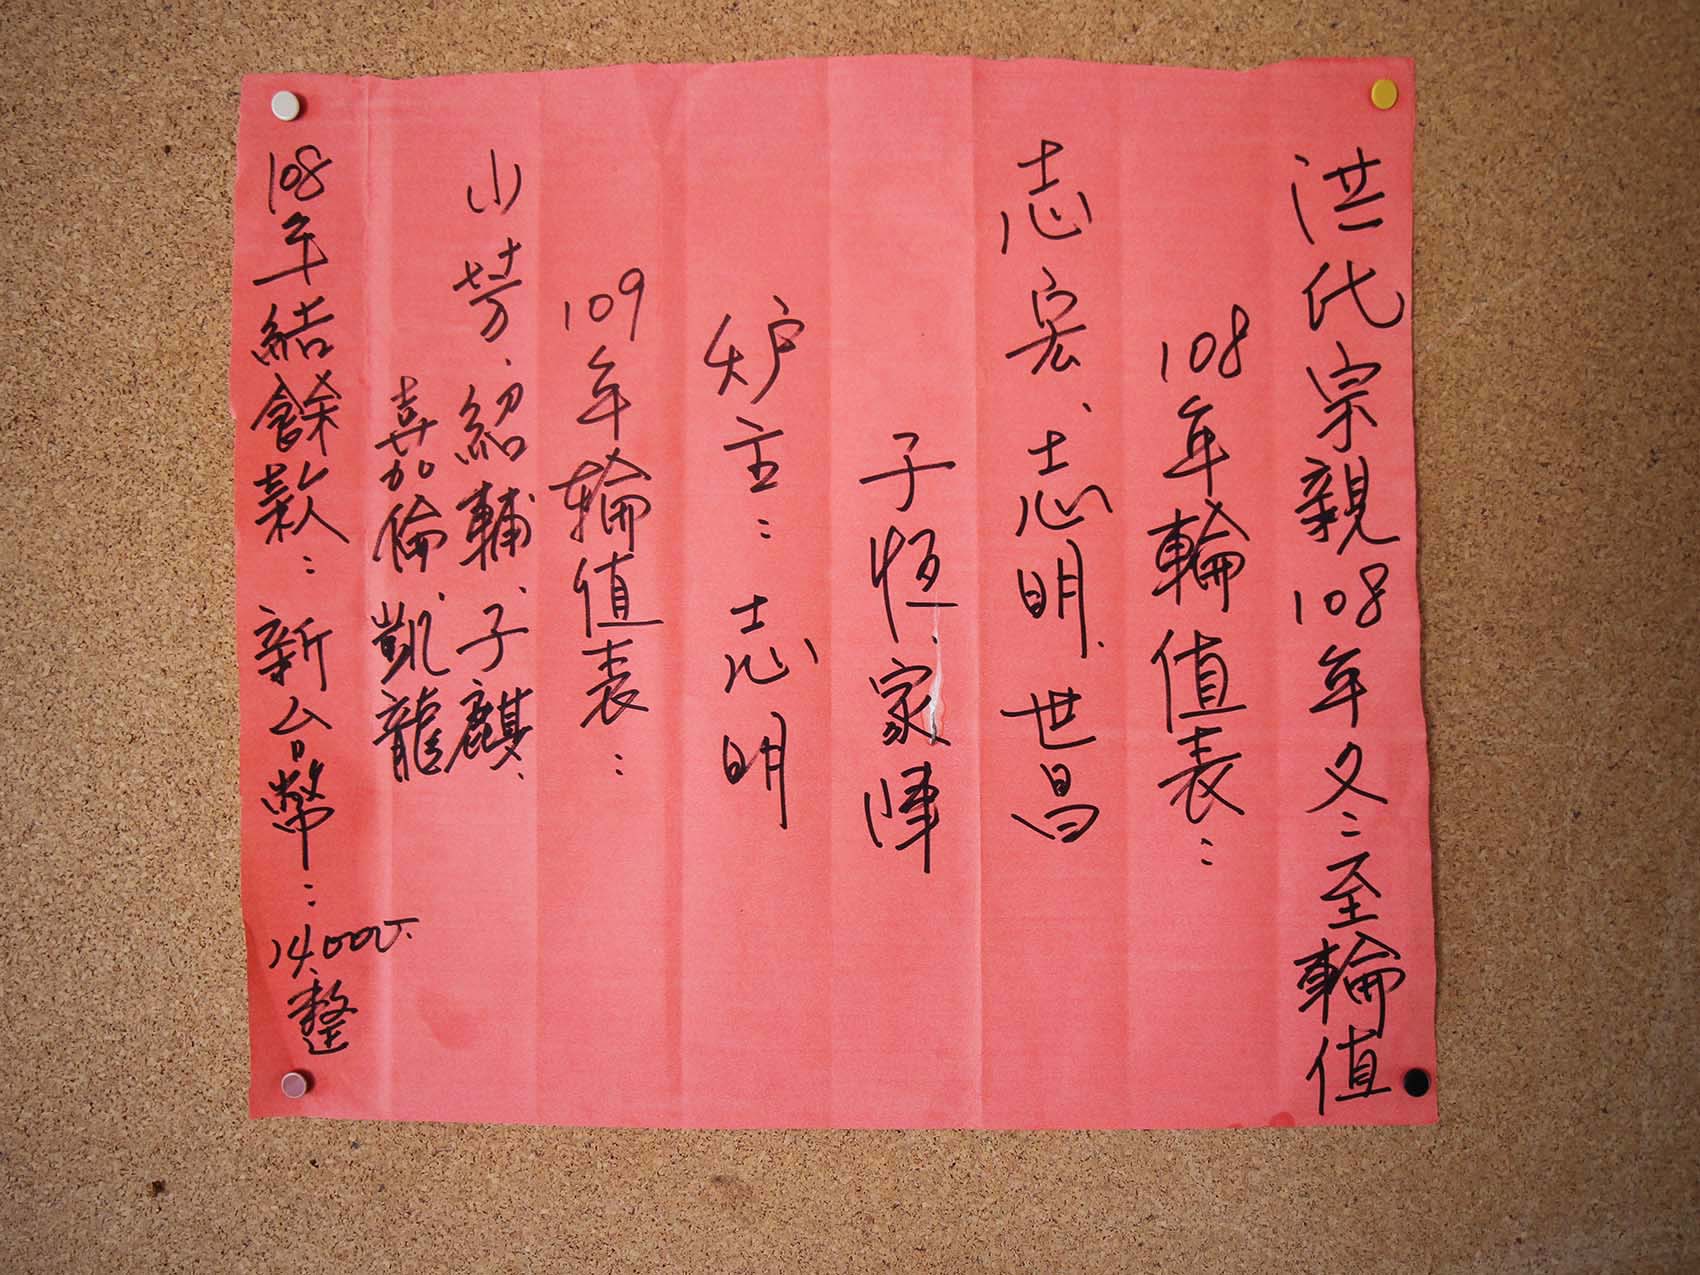 洪代宗親108年冬至輪值
108年輪值表：
志宏、志明、世昌
子恆、家暐
炉主：志明
109年輪值表：
小芳、紹輔、子麒、
嘉倫、凱龍
108年結餘款：新台幣：14,000整